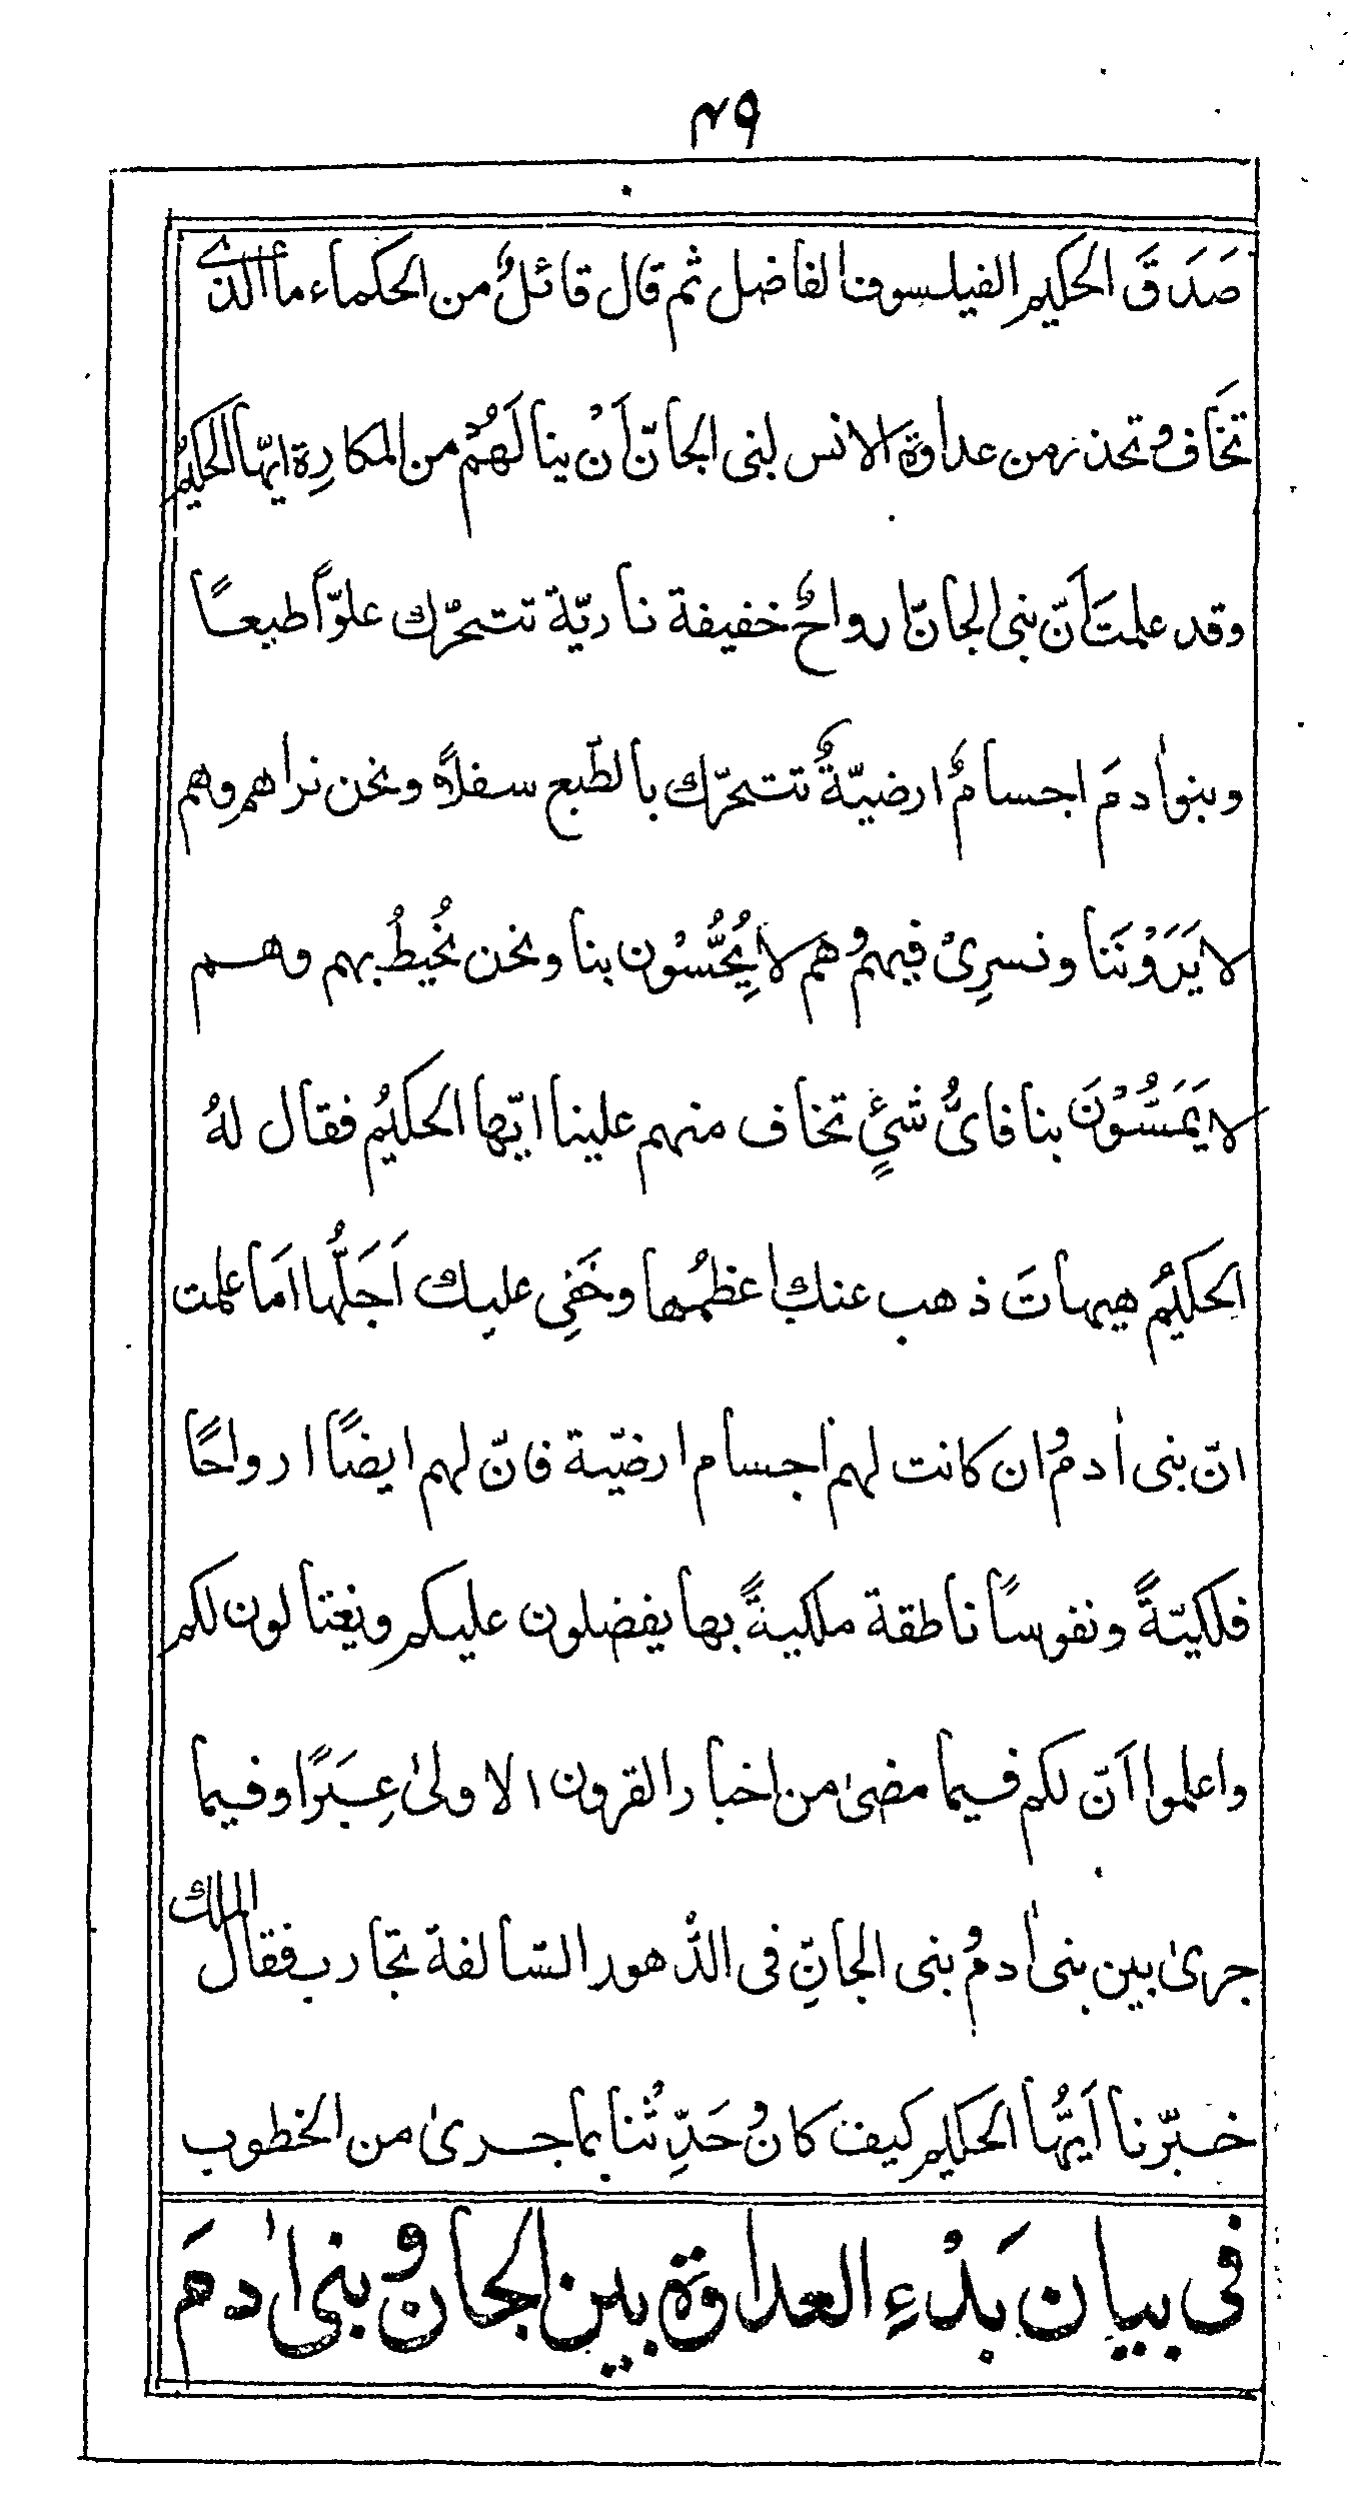 ۴۹
صَدَقَ الحكيم الفيلسوف الفاضل ثم قال قائلٌ من الحكماء ما الذے
تَخاف وتحذر من عداوة الانس لبنى الجانّ اَنْ ينالَهُمْ من المكارِة ايّها الحكيمُ
وقد علمتَ اَنّ بنى الجانّ ارواحٌ خفيفة ناريّة تتحرّك علوّاً طبعاً
وبنواٰدمَ اجسامٌ ارضيّةٌ تتحرّك بالطّبع سفلاً ونحن نراهم وهم
لا يَرَوْنَنا ونسرِىْ فيهم وهم لا يُحِسُّوْن بنا ونحن نُحيطُ بهم وهم
لا يَمَسُّوْنَ بنا فاىُّ شئٍ تخاف منهم علينا ايّها الحكيمُ فقال لهُ
الحكيمُ هيهاتَ ذهب عنك اعظمُها وخَفِى عليك اَجَلُّها اَما علمت
انّ بنى اٰدم وان كانت لهم اجسام ارضيّة فانّ لهم ايضاً ارواحًا
فلكيّةً ونفوساً ناطقة ملكيةً بها يفضلون عليكم ويغتالون لكم
واعلموا اَنّ لكم فيما مضىٰ من اخبار القرون الاولىٰ عِبَرًا وفيما
جرىٰ بين بنى اٰدم وبنى الجانِّ فى الدّهور السّالفة تجارب فقال الملك
خبّرنا اَيُّها الحكيم كيف كان وحَدِّثْنا بما جرىٰ من الخطوب
فى بيان بَدْءِ العداوة بين الجان وبنى اٰدمَ